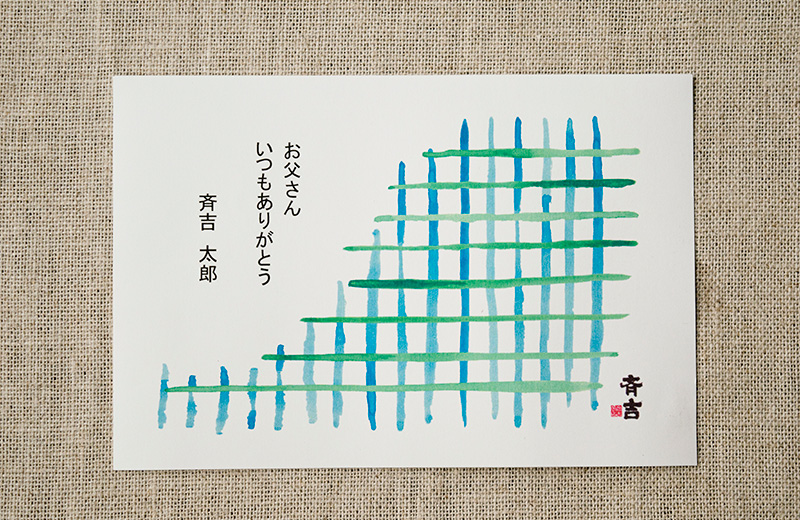 お父さん
いつもありがとう
斉吉　太郎
斉吉